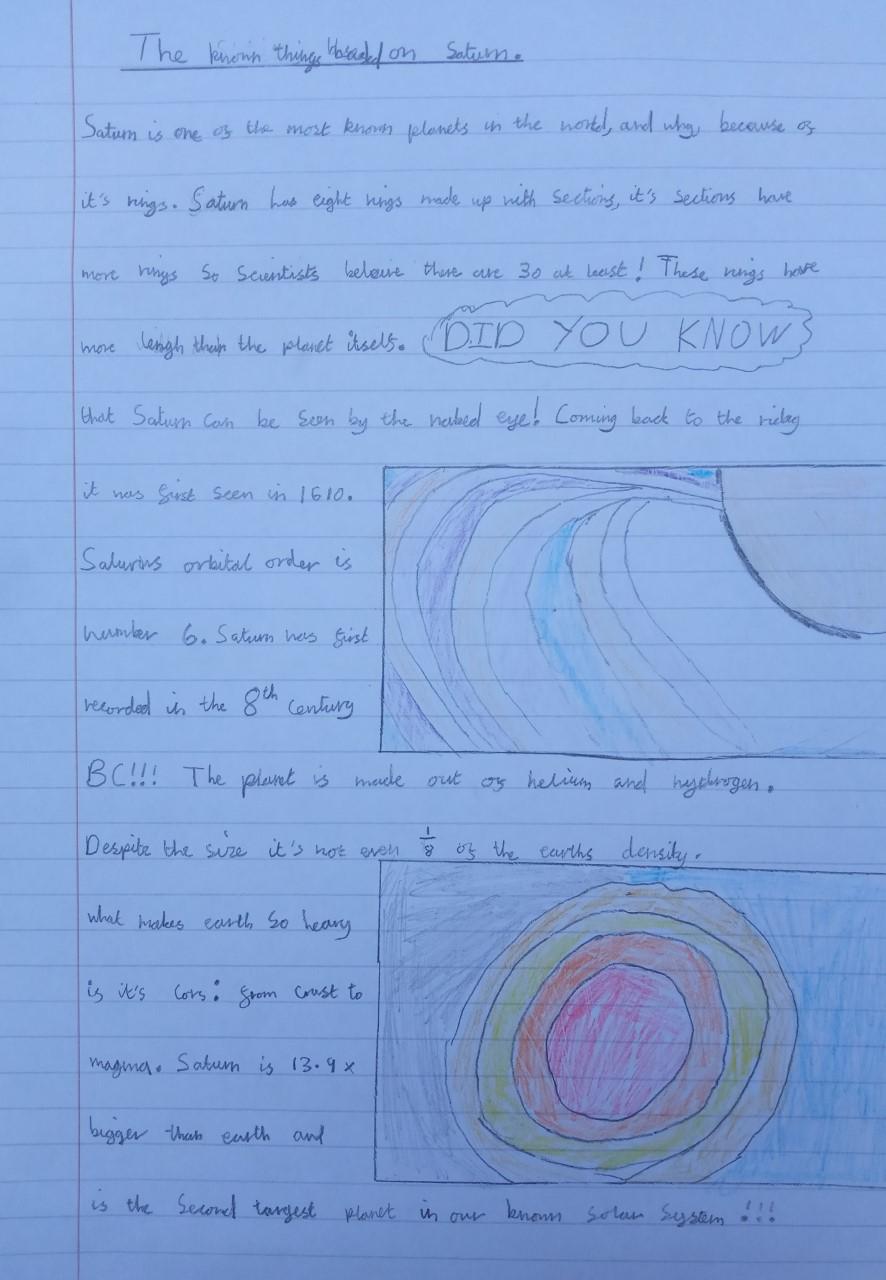 The known things based on Saturn.
Saturn is one of the most known planets in the world, and why, because of
it's rings. Saturn has eight rings made up with sections, it's sections have
more rings so scientists beleive there are 30 at least! These rings have
more lengh than the planet itself. DID YOU KNOW
that Saturn can be seen by the naked eye! Coming back to the
it was first seen in 1610.
Saturns orbital order is
number 6. Saturn was first
recorded in the 8th century
BC!!! The planet is made out of helium and hydrogen.
Despite the size it's not even 1/8 of the earths density.
what makes earth so heavy
is it's cors: from crust to
magma. Saturn is 13.9 x
bigger than earth and
is the second largest planet in our known solar system!!!